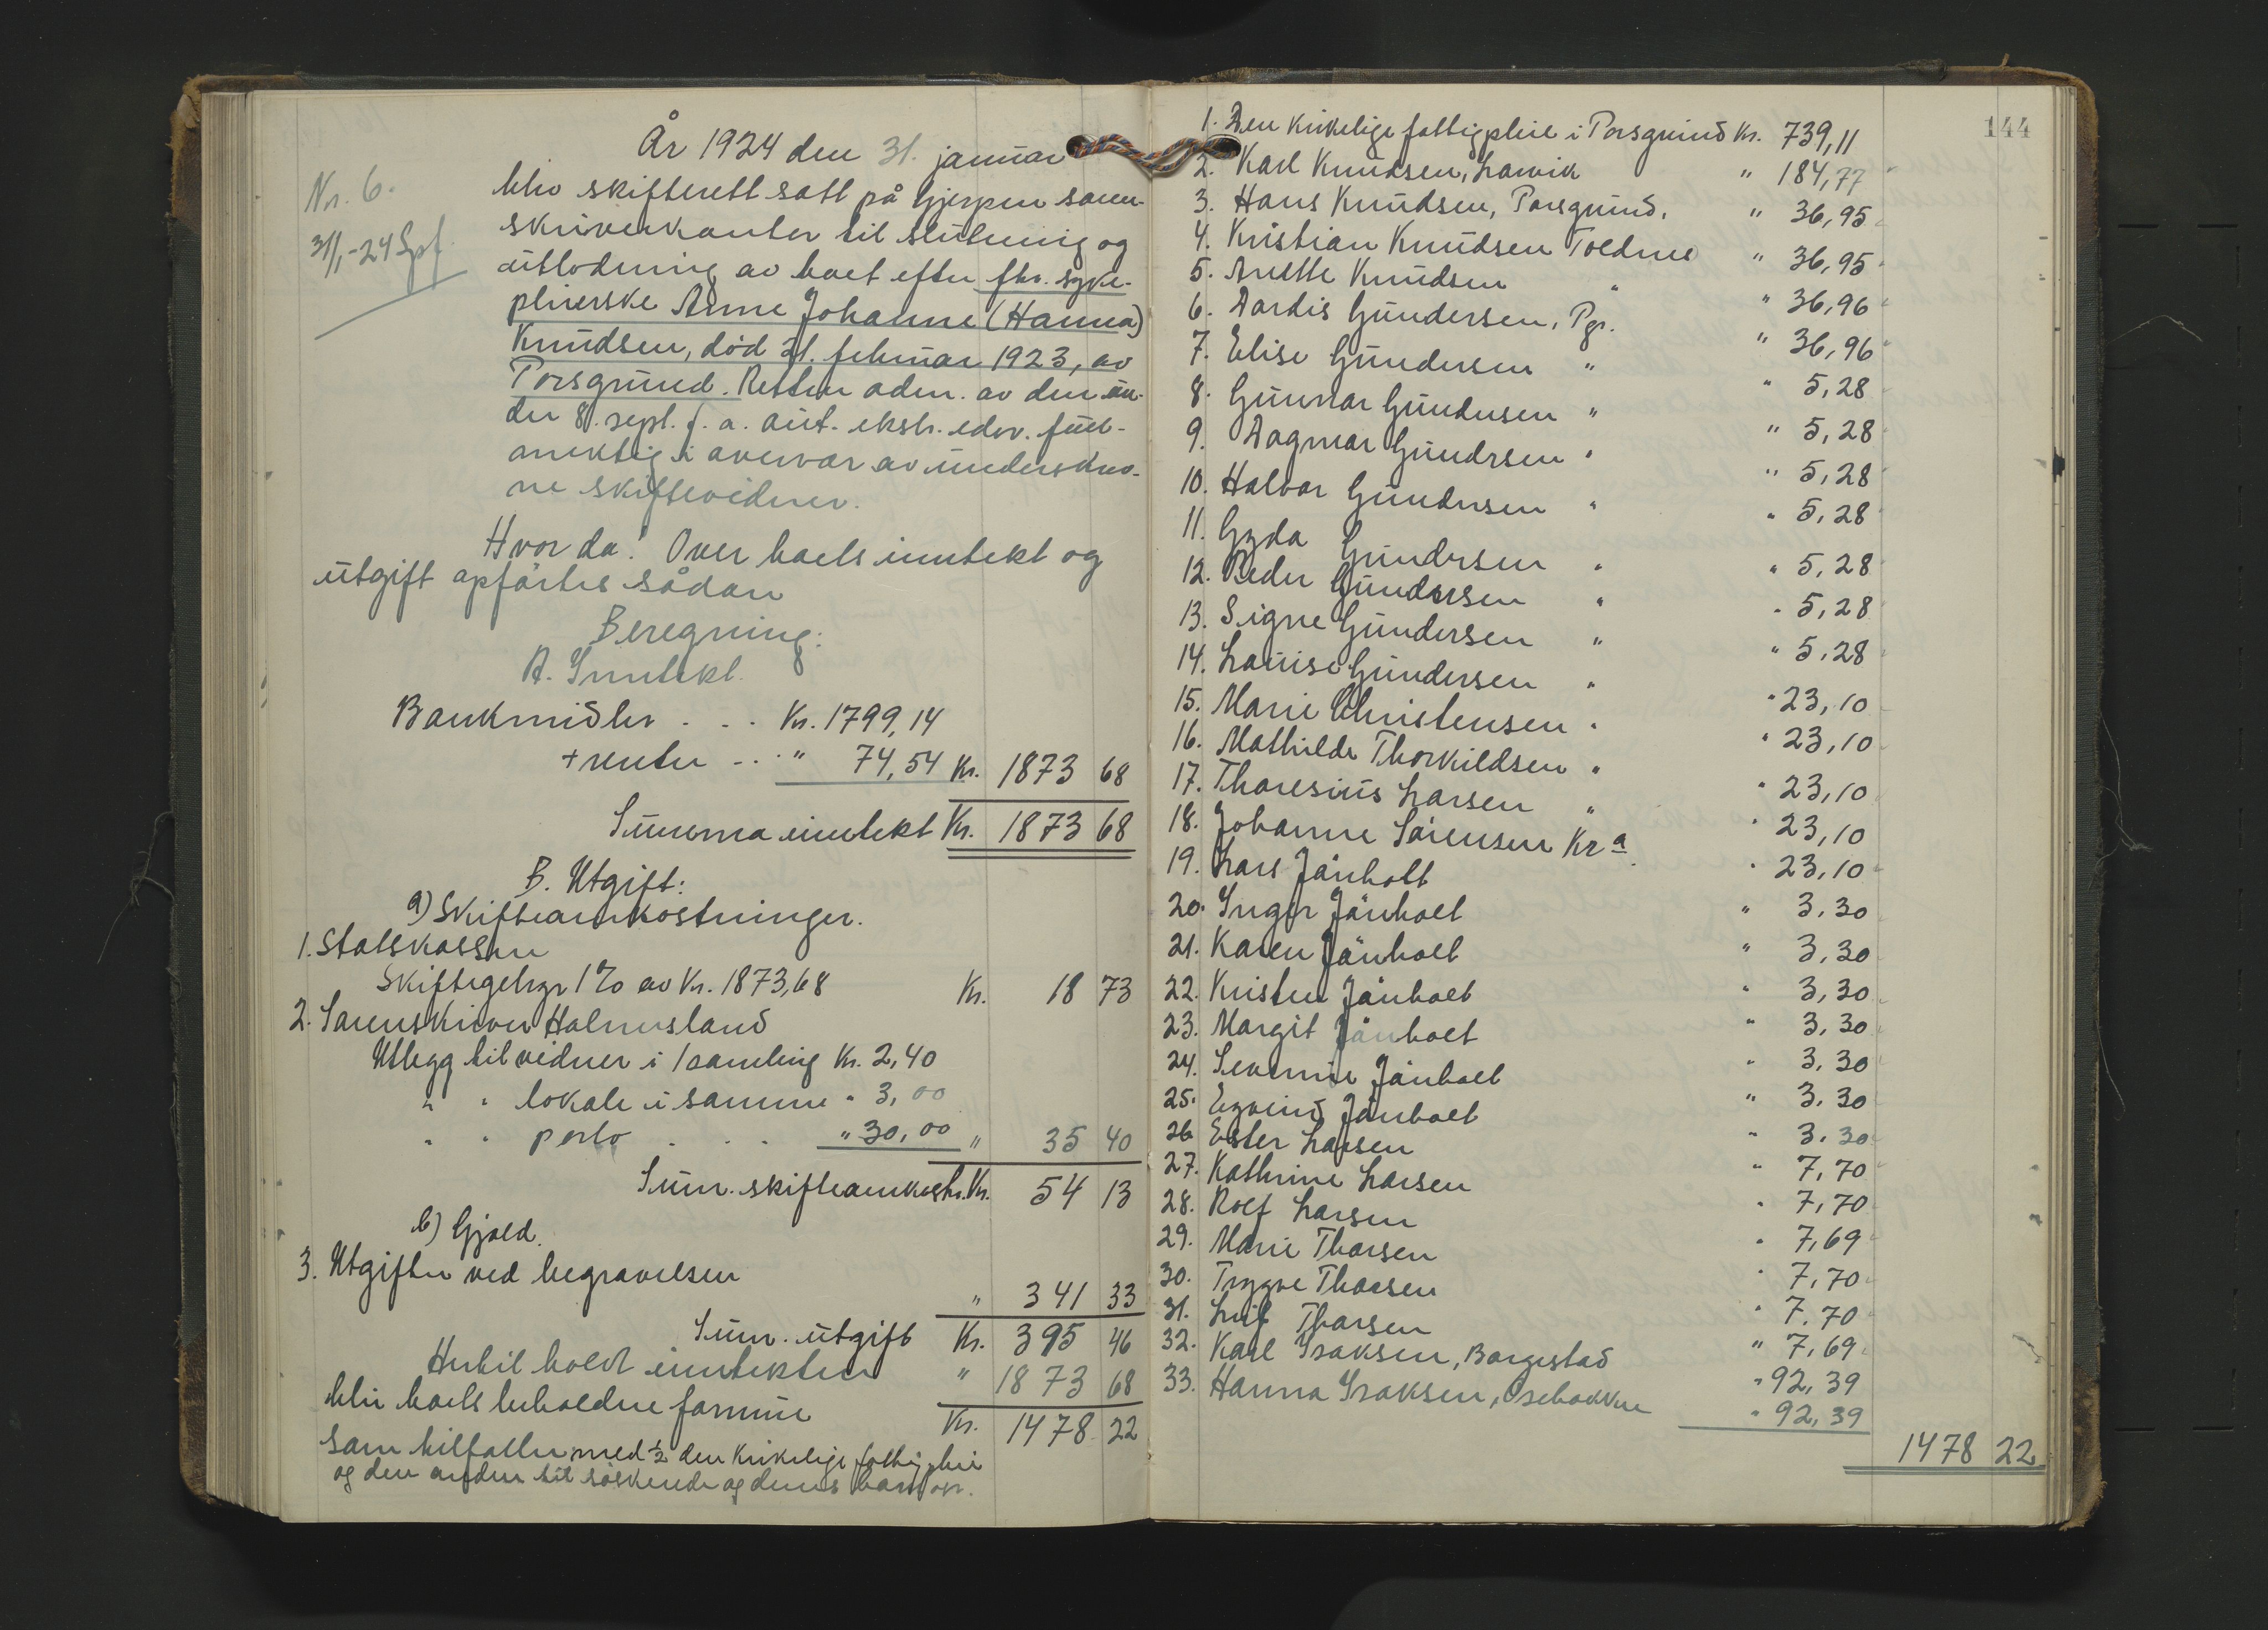 År 1924 den 31. januar
Nr. 6.
31/1-24 Spf.
blev skifterett satt på Gjerpen soren-
skriverkontor til slutning og
utlodning av boet efter fhv. syke-
pleierske Anne Johanne (Hanna)
Knudsen, död 21. februar 1923, av
Porsgrund. Retten adm. av den un-
der 8. sept. f. a. aut. ekstr. edsv. full-
mektig i overvær av underskrev-
ne skiftevidner.
Hvorda: Over boets inntekt og
utgift opförtes sådan
Beregning:
A. Inntekt.
Bankmidler . . . Kr. 1799,14
+ renter - . . " 74,54 Kr. 1873 68
Summa inntekt Kr. 1873 68
B. Utgift:
a) Skifteomkostninger.
1. Statskassen
Skiftegebyr 1% av Kr. 1873,68 Kr. 18 73
2. Sorenskriver Holmesland
Utlegg til vidner i 1 samling Kr. 2,40
" " lokale i samme " 3,00
" " porto . . . " 30,00 " 35 40
Sum. skifteomkostn. Kr. 54 13
b) Gjæld.
3. Utgifter ved begravelsen
" 341 33
Sum. utgift Kr. 395 46
Hertil holdt inntekten " 1873 68
blir boets beholdne formue
Kr. 1478 22
som tilfaller med 1/2 den kirkelige fattigpleie
og den anden til söskende og deres barn
144
1. Den kirkelige fattigpleie i Porsgrund Kr. 739,11
2. Karl Knudsen, Larvik " 184,77
3. Hans Knudsen, Porsgrund, " 36,95
4. Kristian Knudsen Toldnes " 36,95
5. Anette Knudsen " " 36,96
6. Aardis Gundersen, Pgr. " 36,96
7. Elise Gundersen " " 5,28
8. Gunnar Gundersen " " 5,28
9. Dagmar Gundrsen " " 5,28
10. Halvor Gundersen " " 5,28
11. Gyda Gundersen " " 5,28
12. Peder Gundersen " " 5,28
13. Signe Gundersen " " 5,28
14. Lauise Gundersen " " 23,10
15. Marie Christensen " " 23,10
16. Mathilde Thorkildsen " " 23,10
17. Thoresius Larsen " " 23,10
18. Johanne Sörensen Kra. " 23,10
19. Lars Jönholt " 3,30
20. Inger Jönholt " 3,30
21. Karen Jönholt " 3,30
22. Kristen Jönholt " 3,30
23. Margit Jönholt " 3,30
24. Severine Jönholt " 3,30
25. Eyvind Jönholt " 3,30
26. Ester Larsen " 7,70
27. Kathrine Larsen " 7,70
28. Rolf Larsen " 7,69
29. Marie Thorsen " 7,70
30. Trygve Thorsen " 7,70
31. Leif Thorsen " 7,69
32. Karl Isaksen, Borgestad " 92,39
33. Hanna Isaksen, Osebakken " 92,39
1478 22